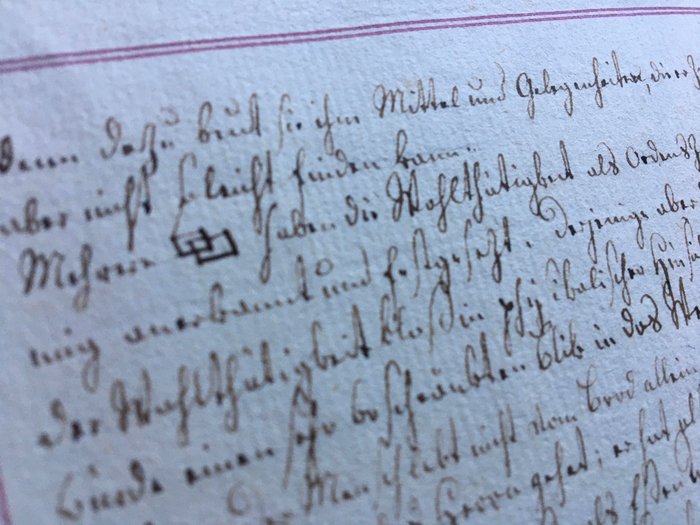 denn dazu beut sie ihm Mittel und Gelegenheiten, die er
aber nicht so leicht finden kann.
Mehrere haben die Wohlthätigkeit als Ordens
mig anerkannt und festgesetzt. Derjenige aber
der Wohlthätigkeit bloß in physikalischer Hinsi
würde einen sehr beschränkten Blik in das We
Der Mensch lebt nicht vom Brod allein
Herrn gehet; er hat